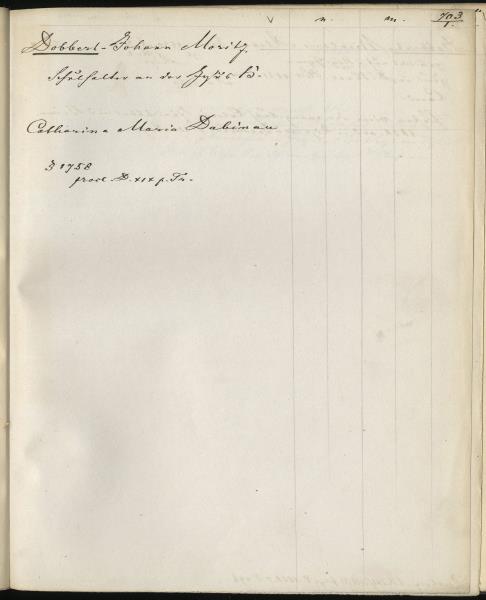 v. n. m. 703
1.
Dobbert - Johann Moritz.
Schulhalter an der
Catharina Maria Dubinau
3 1758
procl. D. XIX p. Tr.